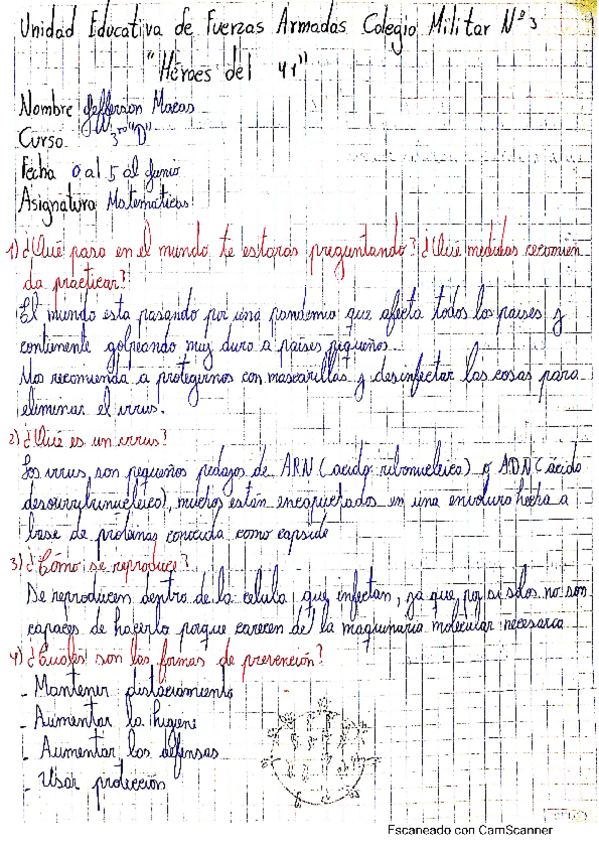 Unidad Educativa de Fuerzas Armadas Colegio Militar Nº 3
"Héroes del 41"
Nombre Jefferson Macas
Curso 3ro "D"
Fecha 0 al 5 al Junio
Asignatura Matemáticas
1) ¿Qué pasa en el mundo te estaras preguntando? ¿Que medidas recomien
da practicar?
El mundo esta pasando por una pandemia que afecta todos los paises y
continente golpeando muy duro a paises pequeños
Nos recomienda a protegernos con mascarillas y desinfectar las cosas para
eliminar el virus.
2) ¿Qué es un virus?
Los virus son pequeños pedazos de ARN (acido ribonucleico) o ADN (ácido
muchos están encapsulados en una envoltura hecha a
base de proteinas conocida como capside
3) ¿Cómo se reproduce?
Se reproducen dentro de la celula que infectan, ya que por si solos no son
capaces de hacerlo porque carecen de la maquinaria molecular necesaria
4) ¿Cuales son las formas de prevención?
- Mantener distaciamiento
- Aumentar la higiene
- Aumentar las defensas
- Usar protección
Escaneado con CamScanner